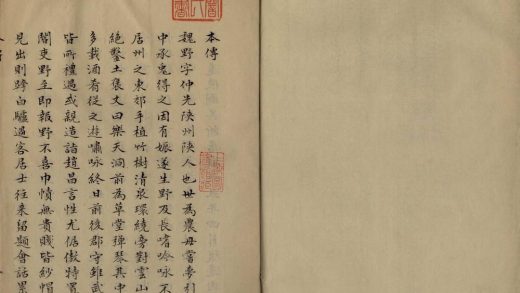 本傳
魏野字仲先陝州陝人也世為農母嘗夢引
中承兔得之因有娠遂生野及長嗜吟咏不
居州之東郊手植竹樹清泉環繞旁對雲山
絕鑿土袤丈曰樂天洞前為草堂彈琴其中
多載酒肴從之遊嘯咏終日前後郡守雖武
皆所禮遇或親造謁趙昌言性尤倨傲特署
閽吏野至即報野不喜巾幘無貴賤皆紗帽
見出則跨白驢過客居士往来留題會話累